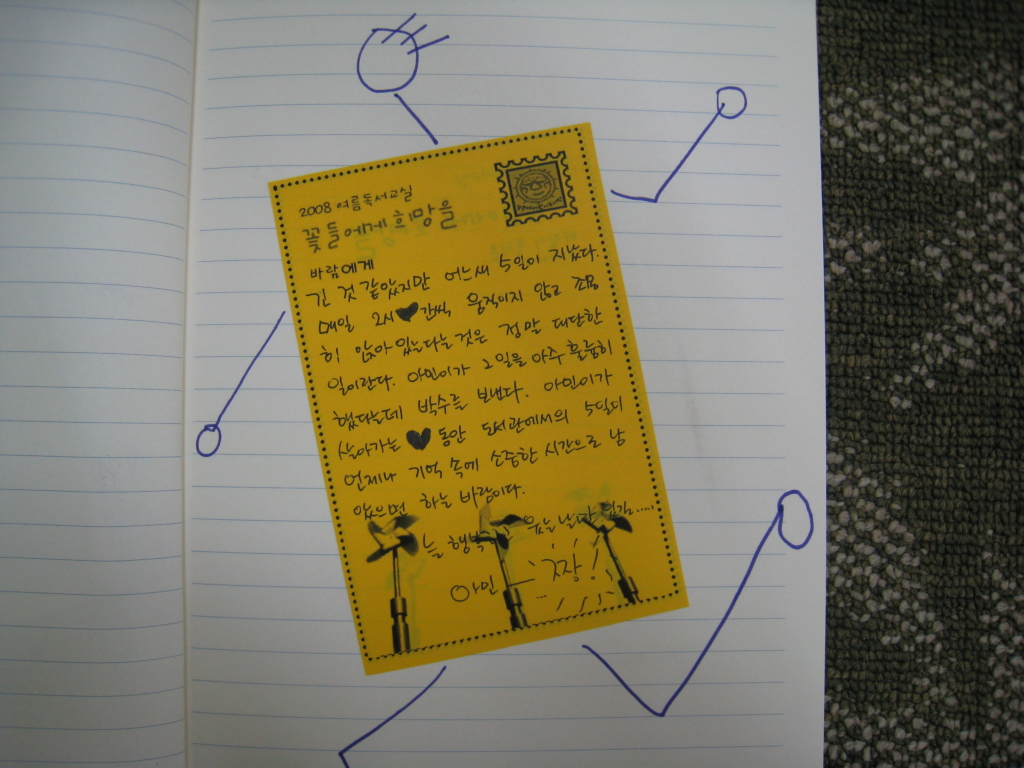 2008 여름독서교실
꽃들에게 희망을
바람에게
긴 것 같았지만 어느새 5일이 지났다.
매일 2시간씩 움직이지 않고 조용
히 앉아 있는다는 것은 정말 대단한
일이란다. 아인이가 2일을 아주 훌륭히
했다는데 박수를 보낸다. 아인이가
살아가는 동안 도서관에서의 5일이
언제나 기억 속에 소중한 시간으로 남
았으면 하는 바람이다.
늘 웃는날만
아인 짱!